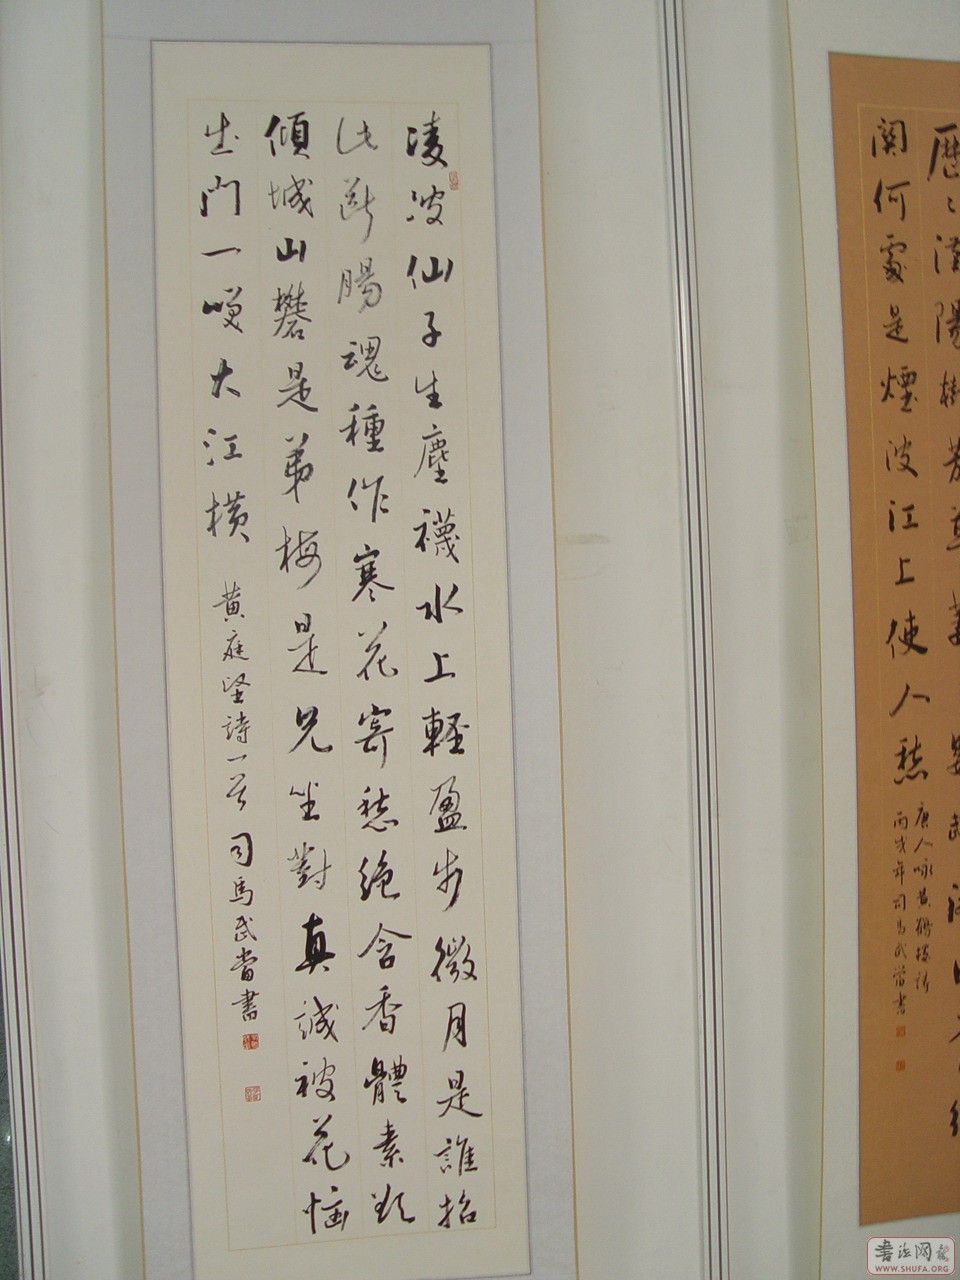 歷〻漢陽樹芳草萋
關何處是煙波江上使人愁
唐人咏黃鶴樓詩
丙戌年司馬武當書
凌波仙子生塵襪水上輕盈步微月是誰招
此斷腸魂種作寒花寄愁絕含香體素欲
傾城山礬是弟梅是兄坐對真誠被花惱
出門一咲大江橫 黃庭堅詩一首 司馬武當書
书法网
WWW.SHUFA.ORG